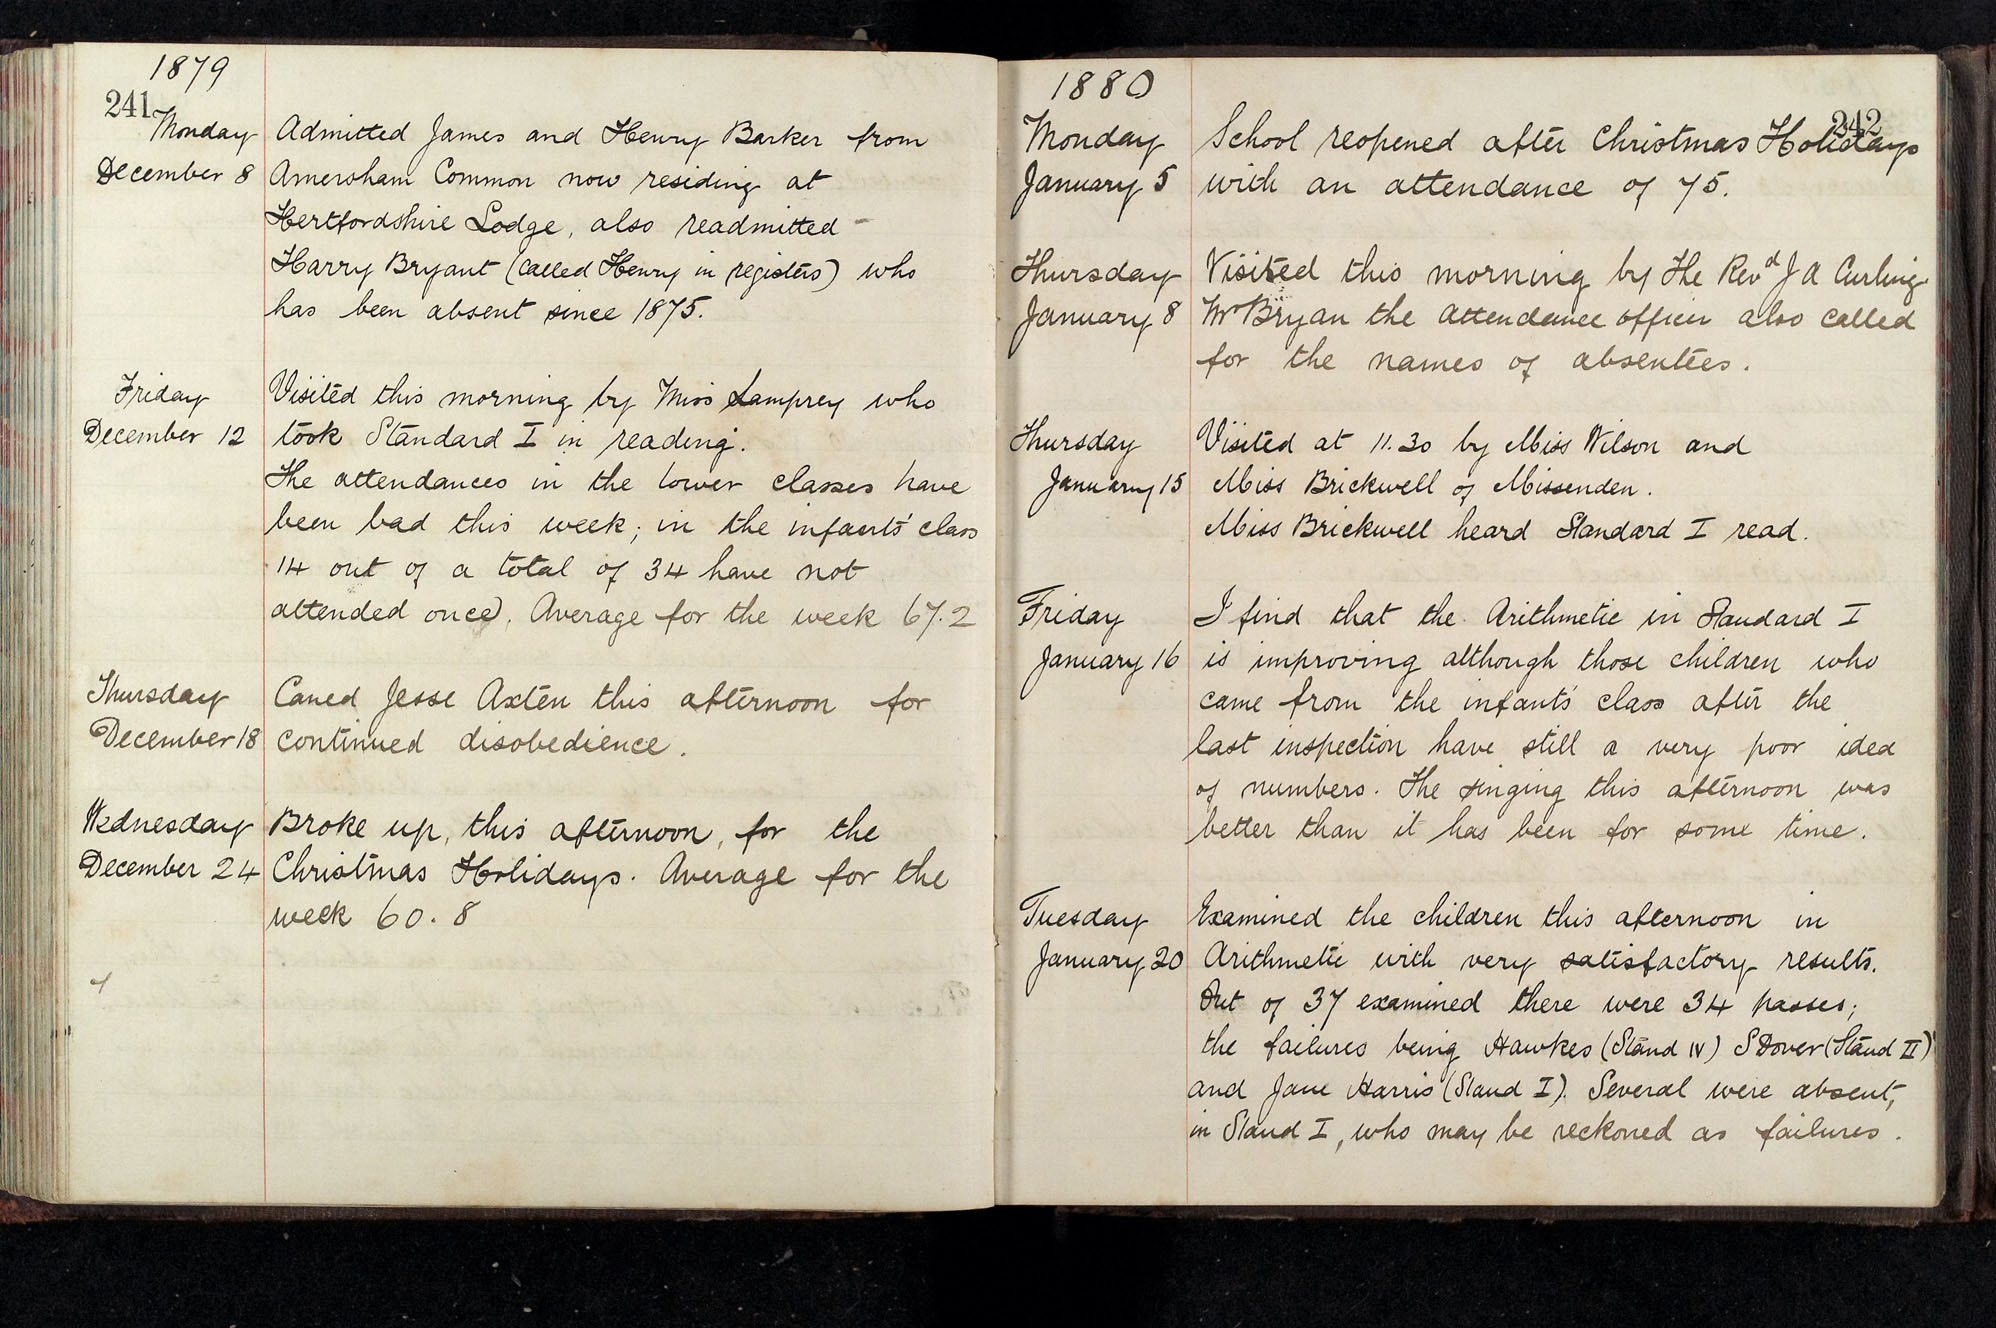 1879
241
Monday
December 8
Admitted James and Henry Barker from
Amersham Common now residing at
Hertfordshire Lodge, also readmitted -
Harry Bryant (called Henry in registers) who
has been absent since 1875.
Friday
December 12
Visited this morning by Miss Lamprey who
took Standard I in reading.
The attendances in the lower classes have
been bad this week; in the infants' class
14 out of a total of 34 have not
attended once). Average for the week 67.2
Thursday
December 18
Caned Jesse Axten this afternoon for
continued disobedience.
Wednesday
December 24
Broke up, this afternoon, for the
Christmas Holidays. Average for the
week 60.8
1880
242
Monday
January 5
School reopened after Christmas Holidays
with an attendance of 75.
Thursday
January 8
Visited this morning by The Revd J A Curling
Mr Bryan the attendance officer also called
for the names of absentees.
Thursday
January 15
Visited at 11.30 by Miss Wilson and
Miss Brickwell of Missenden.
Miss Brickwell heard Standard I read.
Friday
January 16
I find that the Arithmetic in Standard I
is improving although those children who
came from the infants' class after the
last inspection have still a very poor idea
of numbers. The singing this afternoon was
better than it has been for some time.
Tuesday
January 20
Examined the children this afternoon in
Arithmetic with very satisfactory results.
Out of 37 examined there were 34 passes;
the failures being Hawkes (Stand IV) S Dover (Stand II)
and Jane Harris (Stand I). Several were absent,
in Stand I, who may be reckoned as failures.